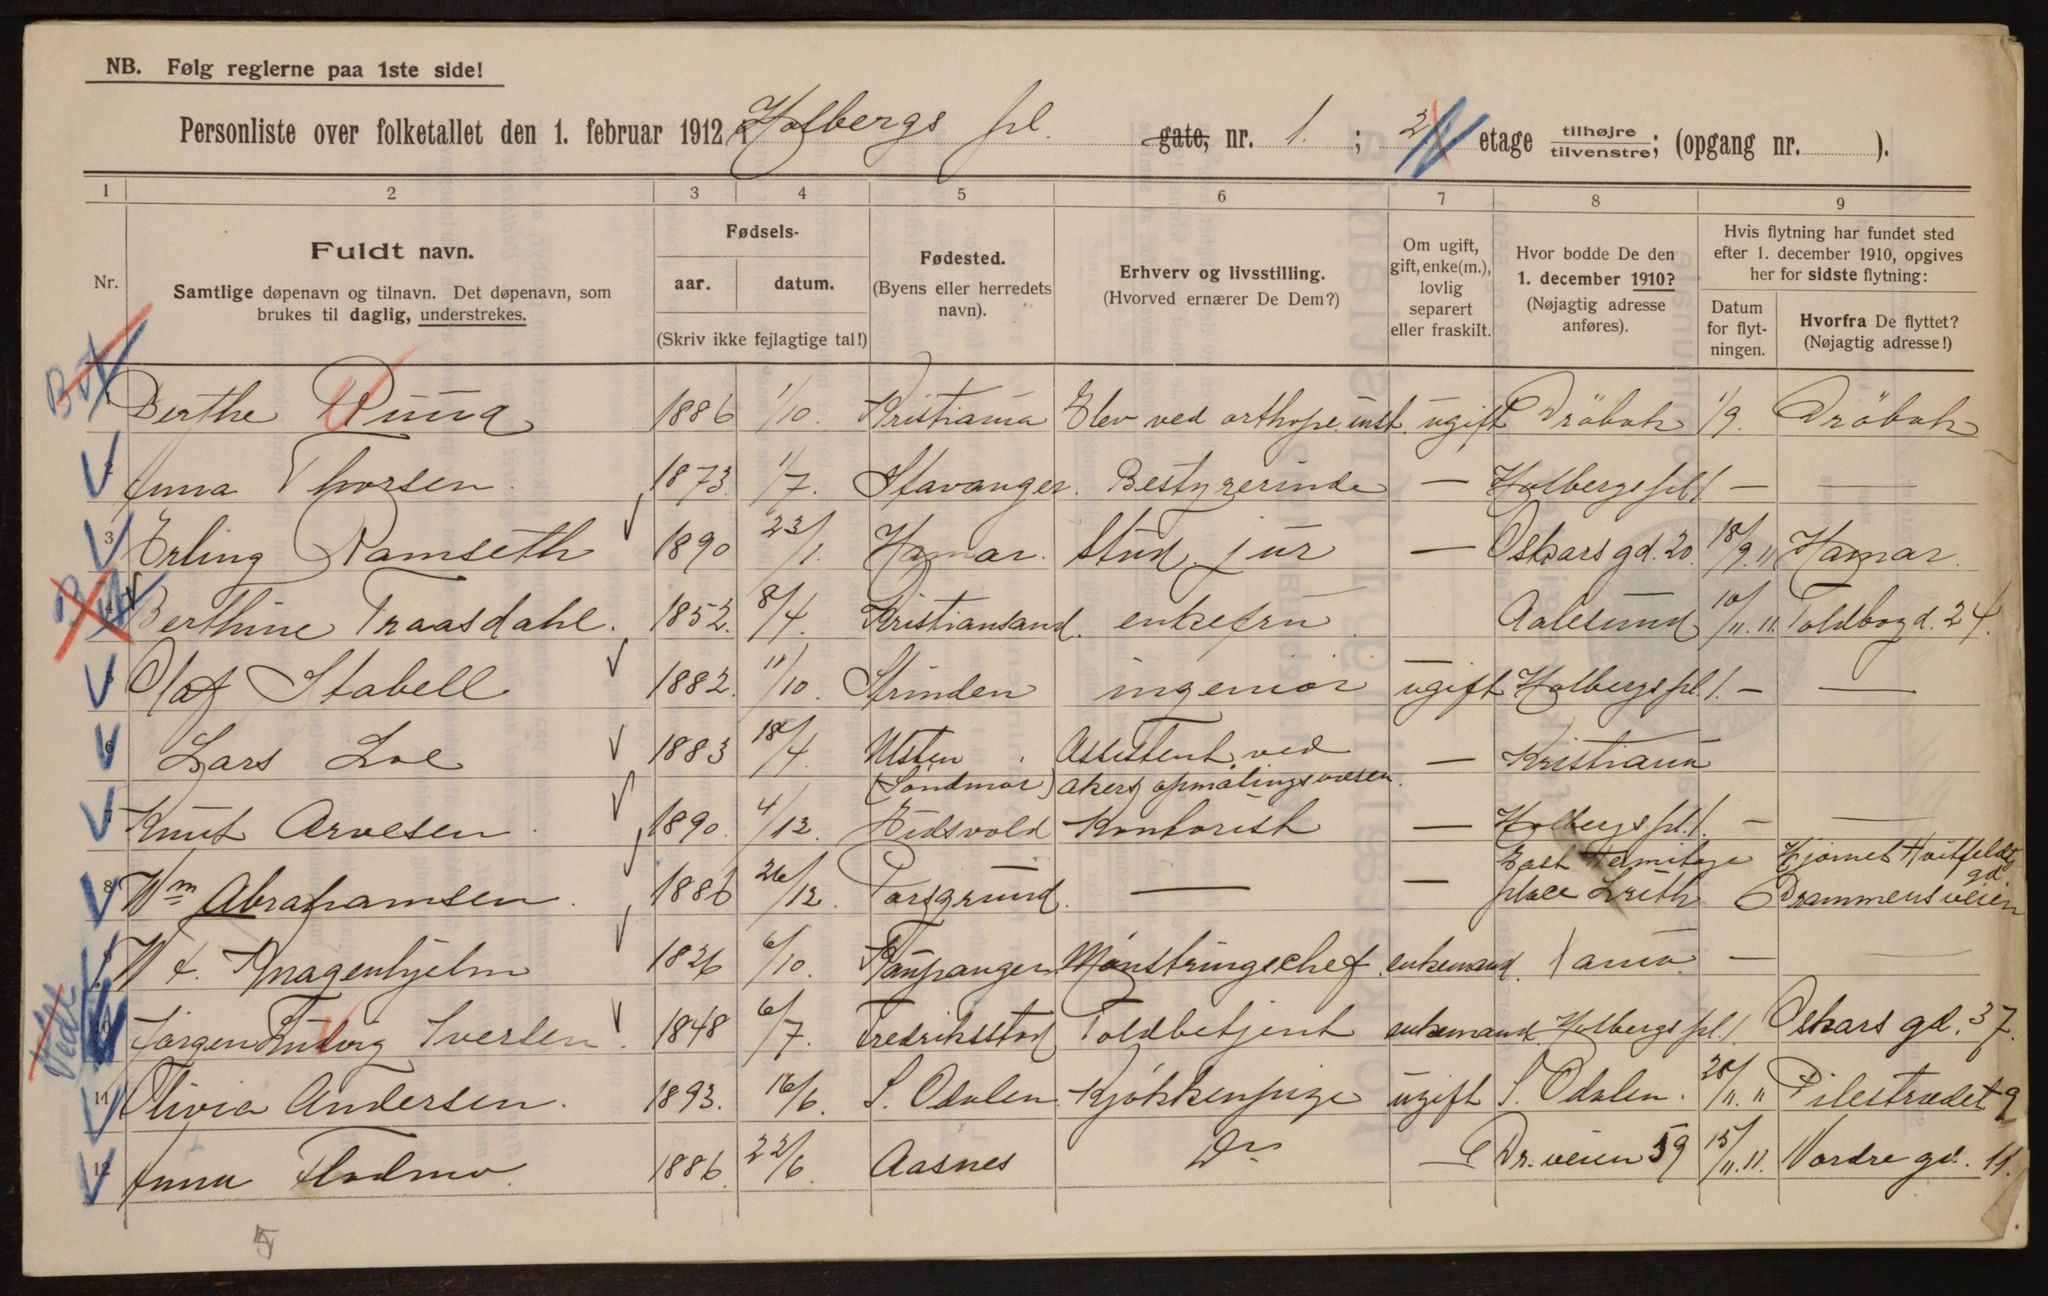 NB. Følg reglerne paa 1ste side!
Personliste over folketallet den 1. februar 1912 i Holbergs pl. gate, nr. 1. ; 2 etage tilhøjre tilvenstre; (opgang nr. ).
1 2 3 4 5 6 7 8 9
Nr.
Fuldt navn.
Samtlige døpenavn og tilnavn. Det døpenavn, som
brukes til daglig, understrekes.
Fødsels-
aar. datum.
(Skriv ikke fejlagtige tal!)
Fødested.
(Byens eller herredets
navn).
Erhverv og livsstilling.
(Hvorved ernærer De Dem?)
Om ugift,
gift, enke(m.),
lovlig
separert
eller fraskilt.
Hvor bodde De den
1. december 1910?
(Nøjagtig adresse
anføres).
Hvis flytning har fundet sted
efter 1. december 1910, opgives
her for sidste flytning:
Datum
for flyt-
ningen.
Hvorfra De flyttet?
(Nøjagtig adresse!)
Berthe 1886 1/10. Kristiania Elev ved orthope. inst. ugift Dröbak 1/9. Dröbak
2 Anna Thorsen. 1873. 1/7. Stavanger. Bestyrerinde — Holbergs pl. 1 — —
3 Erling Ramseth 1890 23/1. Hamar. Stud. jur — Oskars gd. 20. 18/9. 11 Hamar.
4 Berthine Traasdahl. 1852. 8/4. Kristiansand. enkefru Aalesund 10/11. 11. Toldbogd. 24.
5 Olaf Stabell 1882. 11/10. Strinden ingeniør ugift Holbergs pl. 1. — —
6 Lars Loe 1883 18/4. Assistent ved — Kristiania
(Söndmør) Akers opmålingsvæsen.
7 Knut Arvesen 1890. 4/12. Eidsvold Kontorist — Holbergs pl. 1. — —
8 Wm Abrahamsen. 1886 26/12. Porsgrund. — — East Hermitage place Leith Hjørnet Huitfeldts gd. Drammensveien
9 Knagenhjelm 1826 6/10. Kaupanger Mønstringschef enkemand. — —
10 Jørgen Ludvig Iversen. 1848 6/7. Fredriksstad Toldbetjent enkemand Holbergs pl. 1. Oskars gd. 37.
11 Olivia Andersen. 1893. 16/6. S. Odalen. Kjøkkenpige ugift S. Odalen. 28/11. " Pilestrædet 9
12 Anna Flodmo. 1886. 22/6. Aasnes Do — Dr. veien 59 15/11. 11. Nordre gd. 11.
5